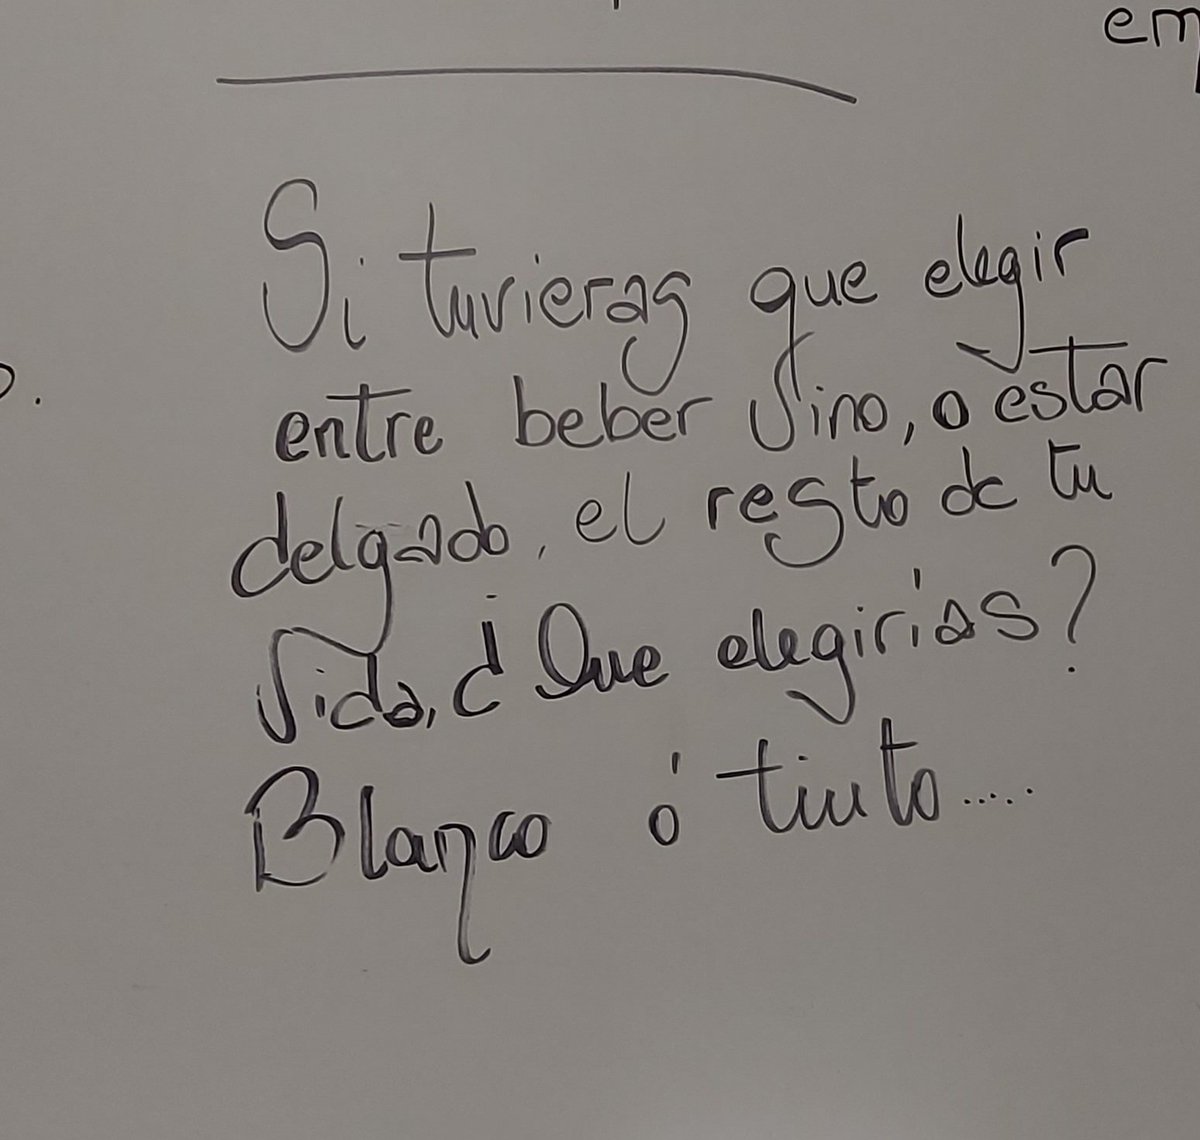 em
o.
Si tuvieras que elegir
entre beber Vino, o estar
delgado, el resto de tu
Vida, ¿Que elegirías?
Blanco ó tinto.....